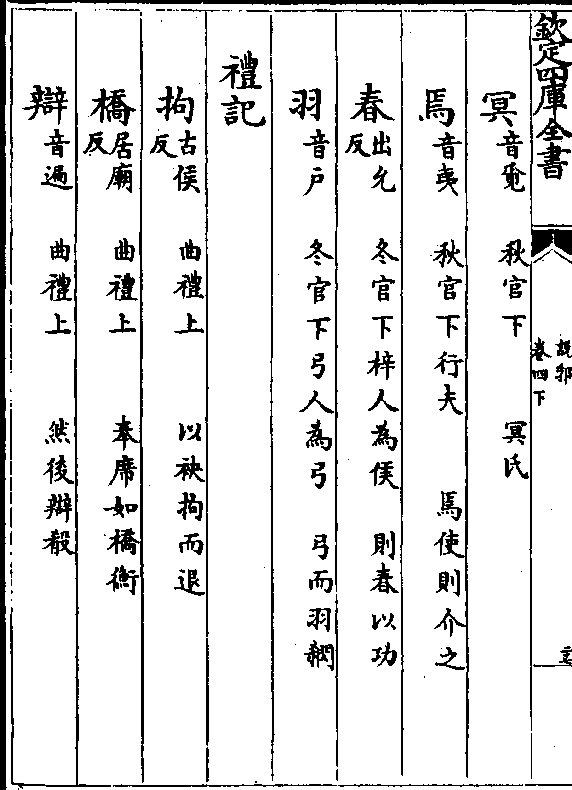 欽定四庫全書
説郛
卷四下
冥 音覓 秋官下 冥氏
焉 音夷 秋官下行夫 焉使則介之
春 出允反 冬官下梓人為侯 則春以功
羽 音戸 冬官下弓人為弓 弓而羽
禮記
拘 古侯反 曲禮上 以袂拘而退
橋 居廟反 曲禮上 奉席如橋衡
辯 音遍 曲禮上 然後辯殽